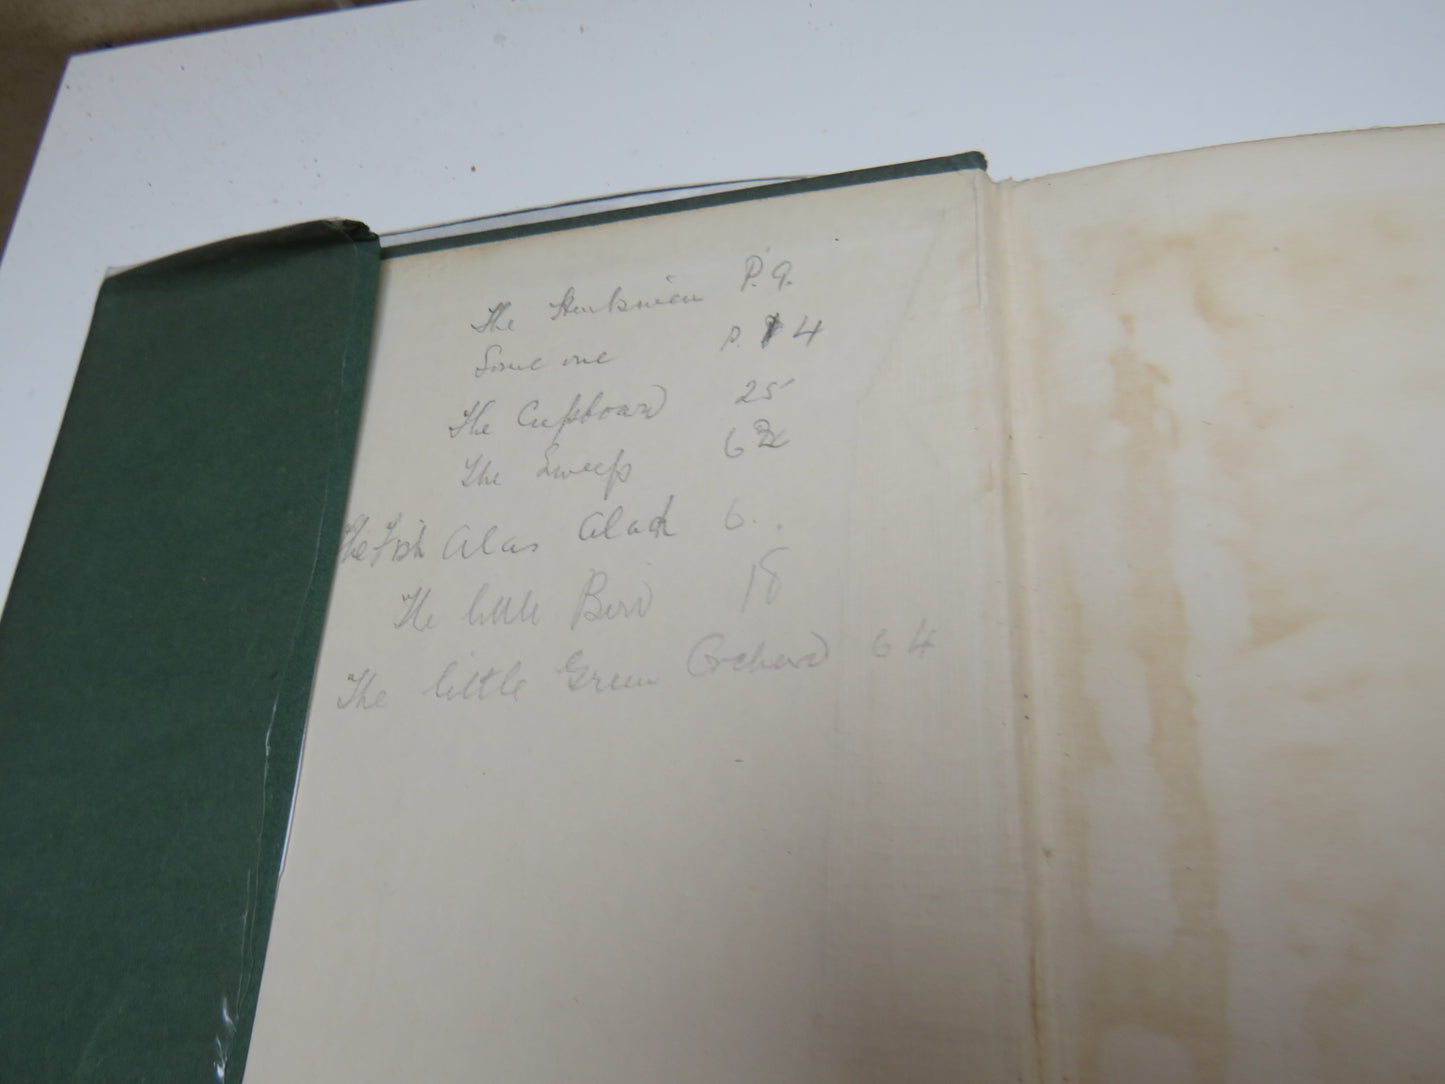 The Huntsmen P. 9.
Some one P. 4
The Cupboard 25
The Sweep 62
The Fish Alas Alack 6..
The little Bird 18
The little Green Orchard 64